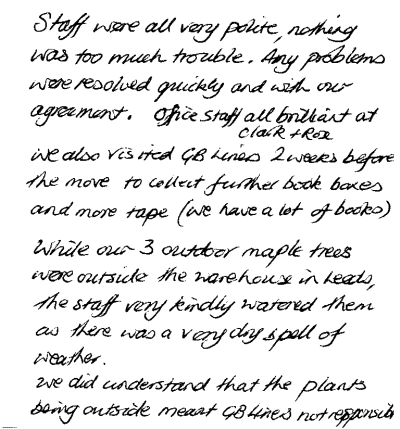 Staff were all very polite, nothing
was too much trouble. Any problems
were resolved quickly and with our
agreement. Office staff all brilliant at
Clark + Rose
We also visited GB Liners 2 weeks before
the move to collect further book boxes
and more tape (we have a lot of books)
While our 3 outdoor maple trees
were outside the warehouse in Leeds,
the staff very kindly watered them
as there was a very dry spell of
weather.
We did understand that the plants
being outside meant GB Liners not responsible